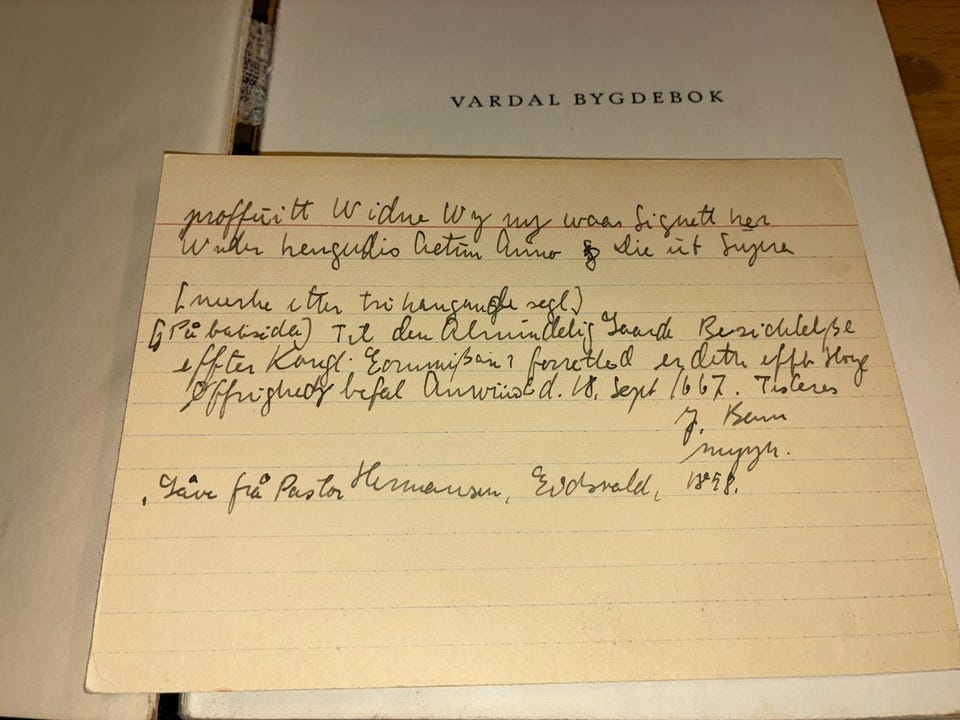 VARDAL BYGDEBOK
proffuitt Widne Wy my waar Signett her
Wnder hengendis Actum Anno Die ut Supra
[merke etter tri hangande segl.]
[På baksida] Til den Almindelig Jaarde Besichtelße
effter Kongl. Commißari forretted er dette effter Høye
Øffrigheds befal Anwiist d. 18. Sept 1667. Testeres
J.
mppr.
Gåve frå Pastor Hermansen, Eidsvald, 1898.